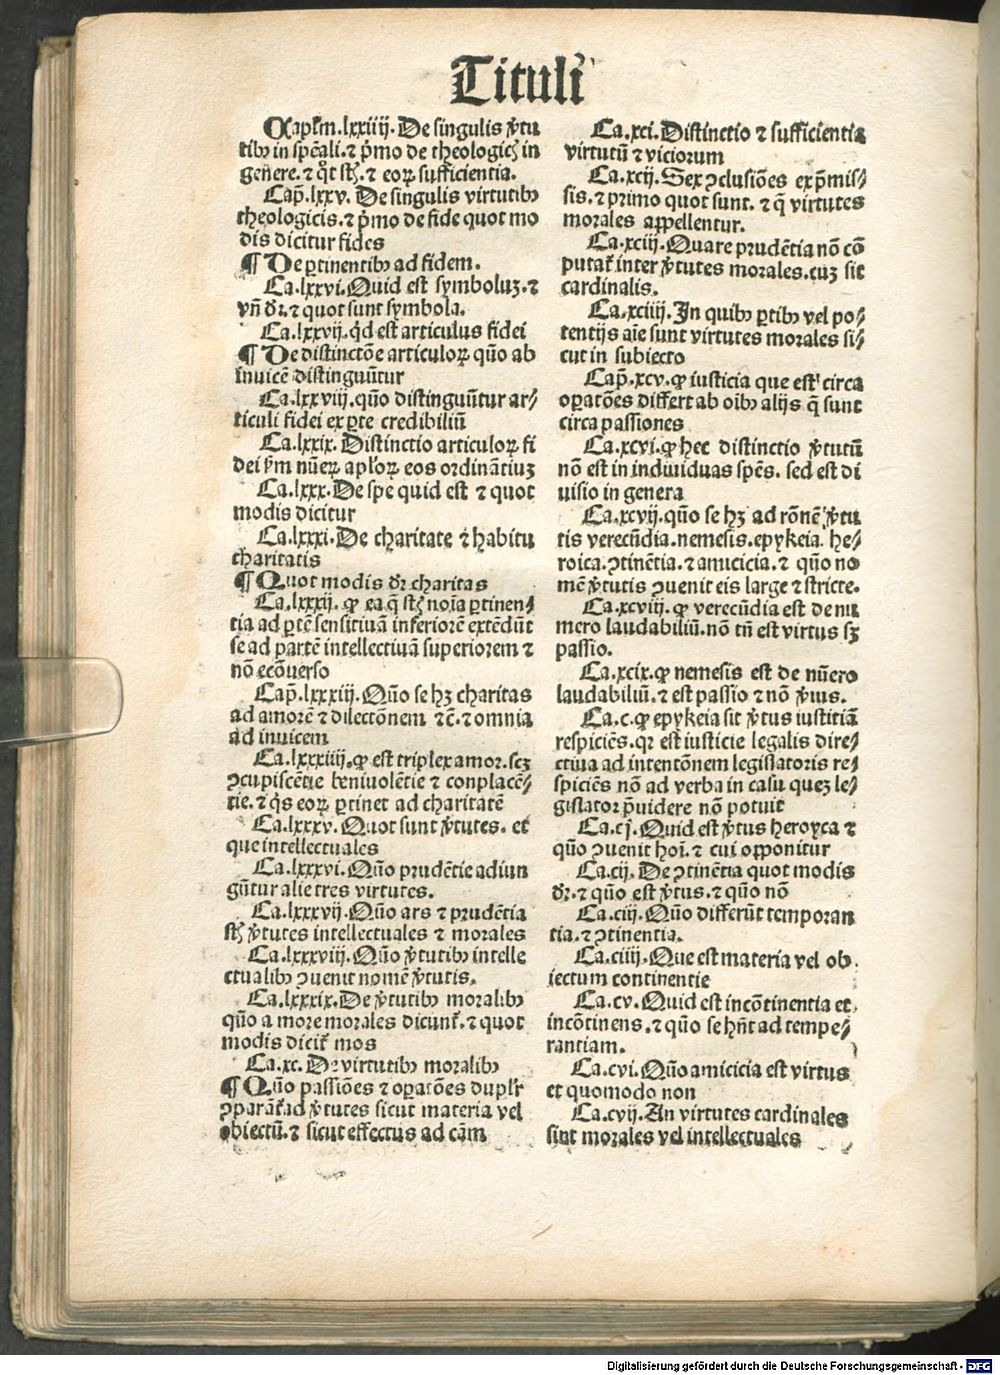 Tituli
Capl'm.lxxiiij. De singulis v̓tu
tibꝰ in sp̄ali.⁊ p̄mo de theologicꝭ in
genere.⁊ qͦt st̄.⁊ eoꝝ sufficientia.
Cap̄.lxxv. De singulis virtutibꝰ
theologicis.⁊ p̄mo de fide quot mo
dis dicitur fides
¶ De ꝑtinentibꝰ ad fidem.
Ca.lxxvi. Quid est symboluꝫ.⁊
vn̄ dr̄.⁊ quot sunt symbola.
Ca.lxxvij. qͥd est articulus fidei
¶ De distinctōe articuloꝝ quō ab
inuicē distinguūtur
Ca.lxxviij. quō distinguūtur ar⸗
ticuli fidei ex ꝑte credibiliū
Ca.lxxix. Distinctio articuloꝝ fi
dei ẜm nūeꝝ apl'oꝝ eos ordinātiuꝫ
Ca.lxxx. De spe quid est ⁊ quot
modis dicitur
Ca.lxxxi. De charitate ⁊ habitu
charitatis
¶ Quot modis dr̄ charitas
Ca.lxxxij. ꝙ ea q̄ st̄ noīa ꝑtinen⸗
tia ad ꝑtē sensitiuā inferiorē extēdūt
se ad partē intellectiuā superiorem ⁊
nō ecōuerso
Cap̄.lxxxiij. Quō se hꝫ charitas
ad amorē ⁊ dilectōnem ⁊c̄.⁊ omnia
ad inuicem
Ca.lxxxiiij. ꝙ est triplex amor. scꝫ
ꝯcupiscētie beniuolētie ⁊ conplacē⸗
tie.⁊ qͥs eoꝝ ꝑtinet ad charitatē
Ca.lxxxv. Quot sunt v̓tutes. et
que intellectuales
Ca.lxxxvi. Quō prudētie adiun
gūtur alie tres virtutes.
Ca.lxxxvij. Quō ars ⁊ prudētia
st̄ v̓tutes intellectuales ⁊ morales
Ca.lxxxviij. Quō v̓tutibꝰ intelle
ctualibꝰ ꝯuenit nomē v̓tutis.
Ca.lxxxix. De v̓tutibꝰ moralibꝰ
quō a more morales dicunt̄.⁊ quot
modis dicit̄ mos
Ca.xc. De virtutibꝰ moralibꝰ
¶ Quō passiōes ⁊ oꝑatōes dupl'r
ꝯparāt̄ ad v̓tutes sicut materia vel
obiectū.⁊ sicut effectus ad cām
Ca.xci. Distinctio ⁊ sufficientia
virtutū ⁊ viciorum
Ca.xcij. Sex ꝯclusiōes ex p̄mis⸗
sis.⁊ primo quot sunt.⁊ q̄ virtutes
morales appellentur.
Ca.xciij. Quare prudētia nō cō
putat̄ inter v̓tutes morales. cuꝫ sit
cardinalis.
Ca.xciiij. In quibꝰ ꝑtibꝰ vel po⸗
tentijs aīe sunt virtutes morales si⸗
cut in subiecto
Cap̄.xcv. ꝙ iusticia que est circa
oꝑatōes differt ab oībꝰ alijs q̄ sunt
circa passiones
Ca.xcvi. ꝙ hec distinctio v̓tutū
nō est in indiuiduas spēs. sed est di
uisio in genera
Ca.xcvij. quō se hꝫ ad rōnē v̓tu
tis verecūdia. nemesis. epykeia. he⸗
roica. ꝯtinētia.⁊ amicicia.⁊ quō no
mē v̓tutis ꝯuenit eis large ⁊ stricte.
Ca.xcviij. ꝙ verecūdia est de nu
mero laudabiliū. nō tn̄ est virtus sꝫ
passio.
Ca.xcix. ꝙ nemesis est de nūero
laudabiliū.⁊ est passio ⁊ nō v̓tus.
Ca.c. ꝙ epykeia sit v̓tus iustitiā
respiciēs. qꝛ est iusticie legalis dire⸗
ctiua ad intentōnem legislatoris re⸗
spiciēs nō ad verba in casu queꝫ le⸗
gislator p̄uidere nō potuit
Ca.cj. Quid est v̓tus heroyca ⁊
quō ꝯuenit hoī.⁊ cui opponitur
Ca.cij. De ꝯtinētia quot modis
dr̄.⁊ quō est v̓tus.⁊ quō nō
Ca.ciij. Quō differūt temporan
tia.⁊ ꝯtinentia.
Ca.ciiij. Que est materia vel ob
iectum continentie
Ca.cv. Quid est incōtinentia et
incōtinens.⁊ quō se hn̄t ad tempe⸗
rantiam.
Ca.cvi. Quō amicicia est virtus
et quomodo non
Ca.cvij. An virtutes cardinales
sint morales vel intellectuales
Digitalisierung gefördert durch die Deutsche Forschungsgemeinschaft - DFG